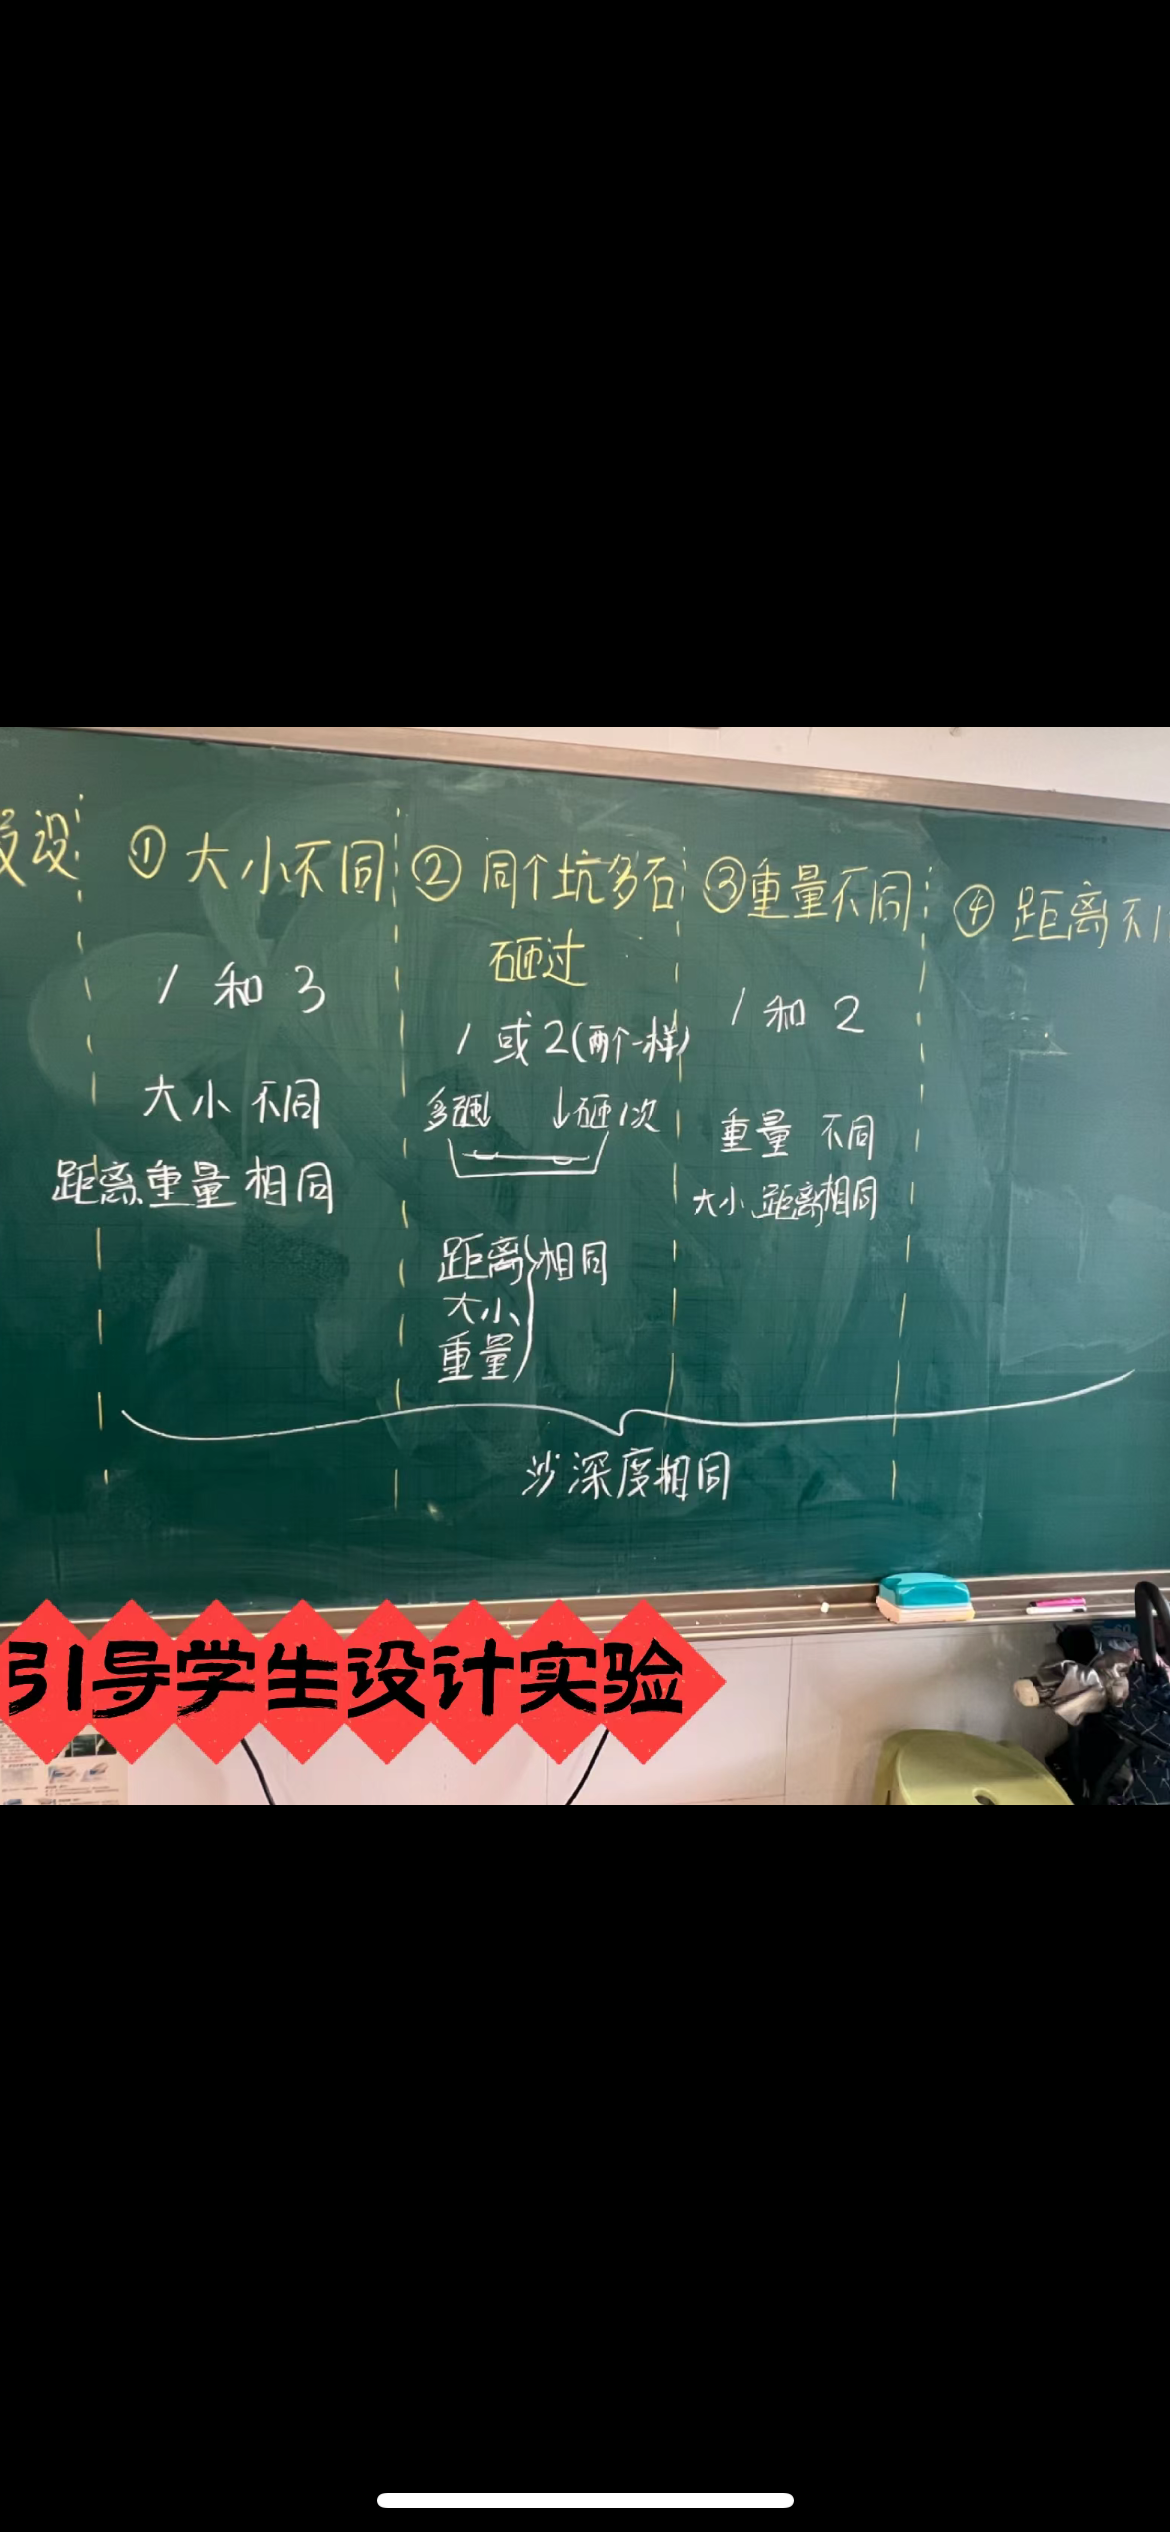 设
① 大小不同
1 和 3
大小 不同
距离、重量 相同
② 同个坑多石
砸过
1 或 2(两个一样)
多砸↓ ↓砸1次
距离 相同
大小
重量
③重量不同
1 和 2
重量 不同
大小、距离相同
④ 距离不
沙深度相同
引导学生设计实验